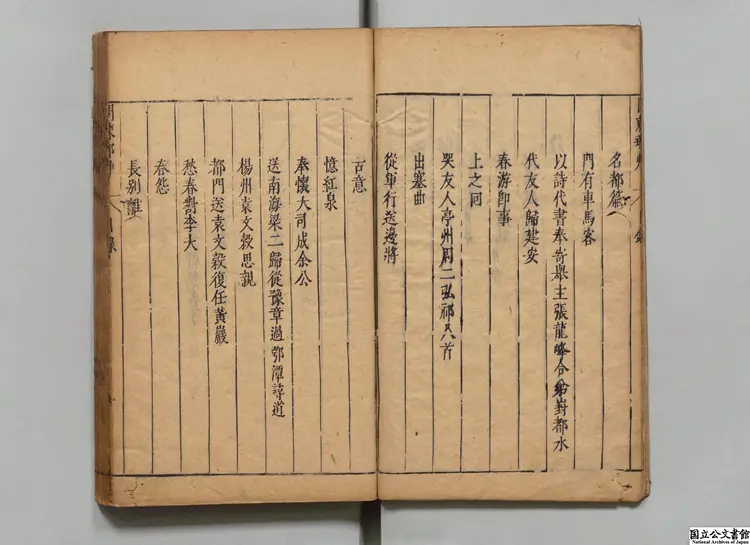 名都篇
門有車馬客
以詩代書奉寄舉主張龍峰令弟對都水
代友人歸建安
春游即事
上之回
哭友人亭州周二弘禴八首
出塞曲
從軍行送邊將
古意
憶紅泉
奉懷大司成余公
送南海梁二歸從豫章過鄂潭尋道
楊州袁文穀思親
都門送袁文穀復任黃巖
愁春酬李大
春怨
長別離
国立公文書館
National Archives of Japan